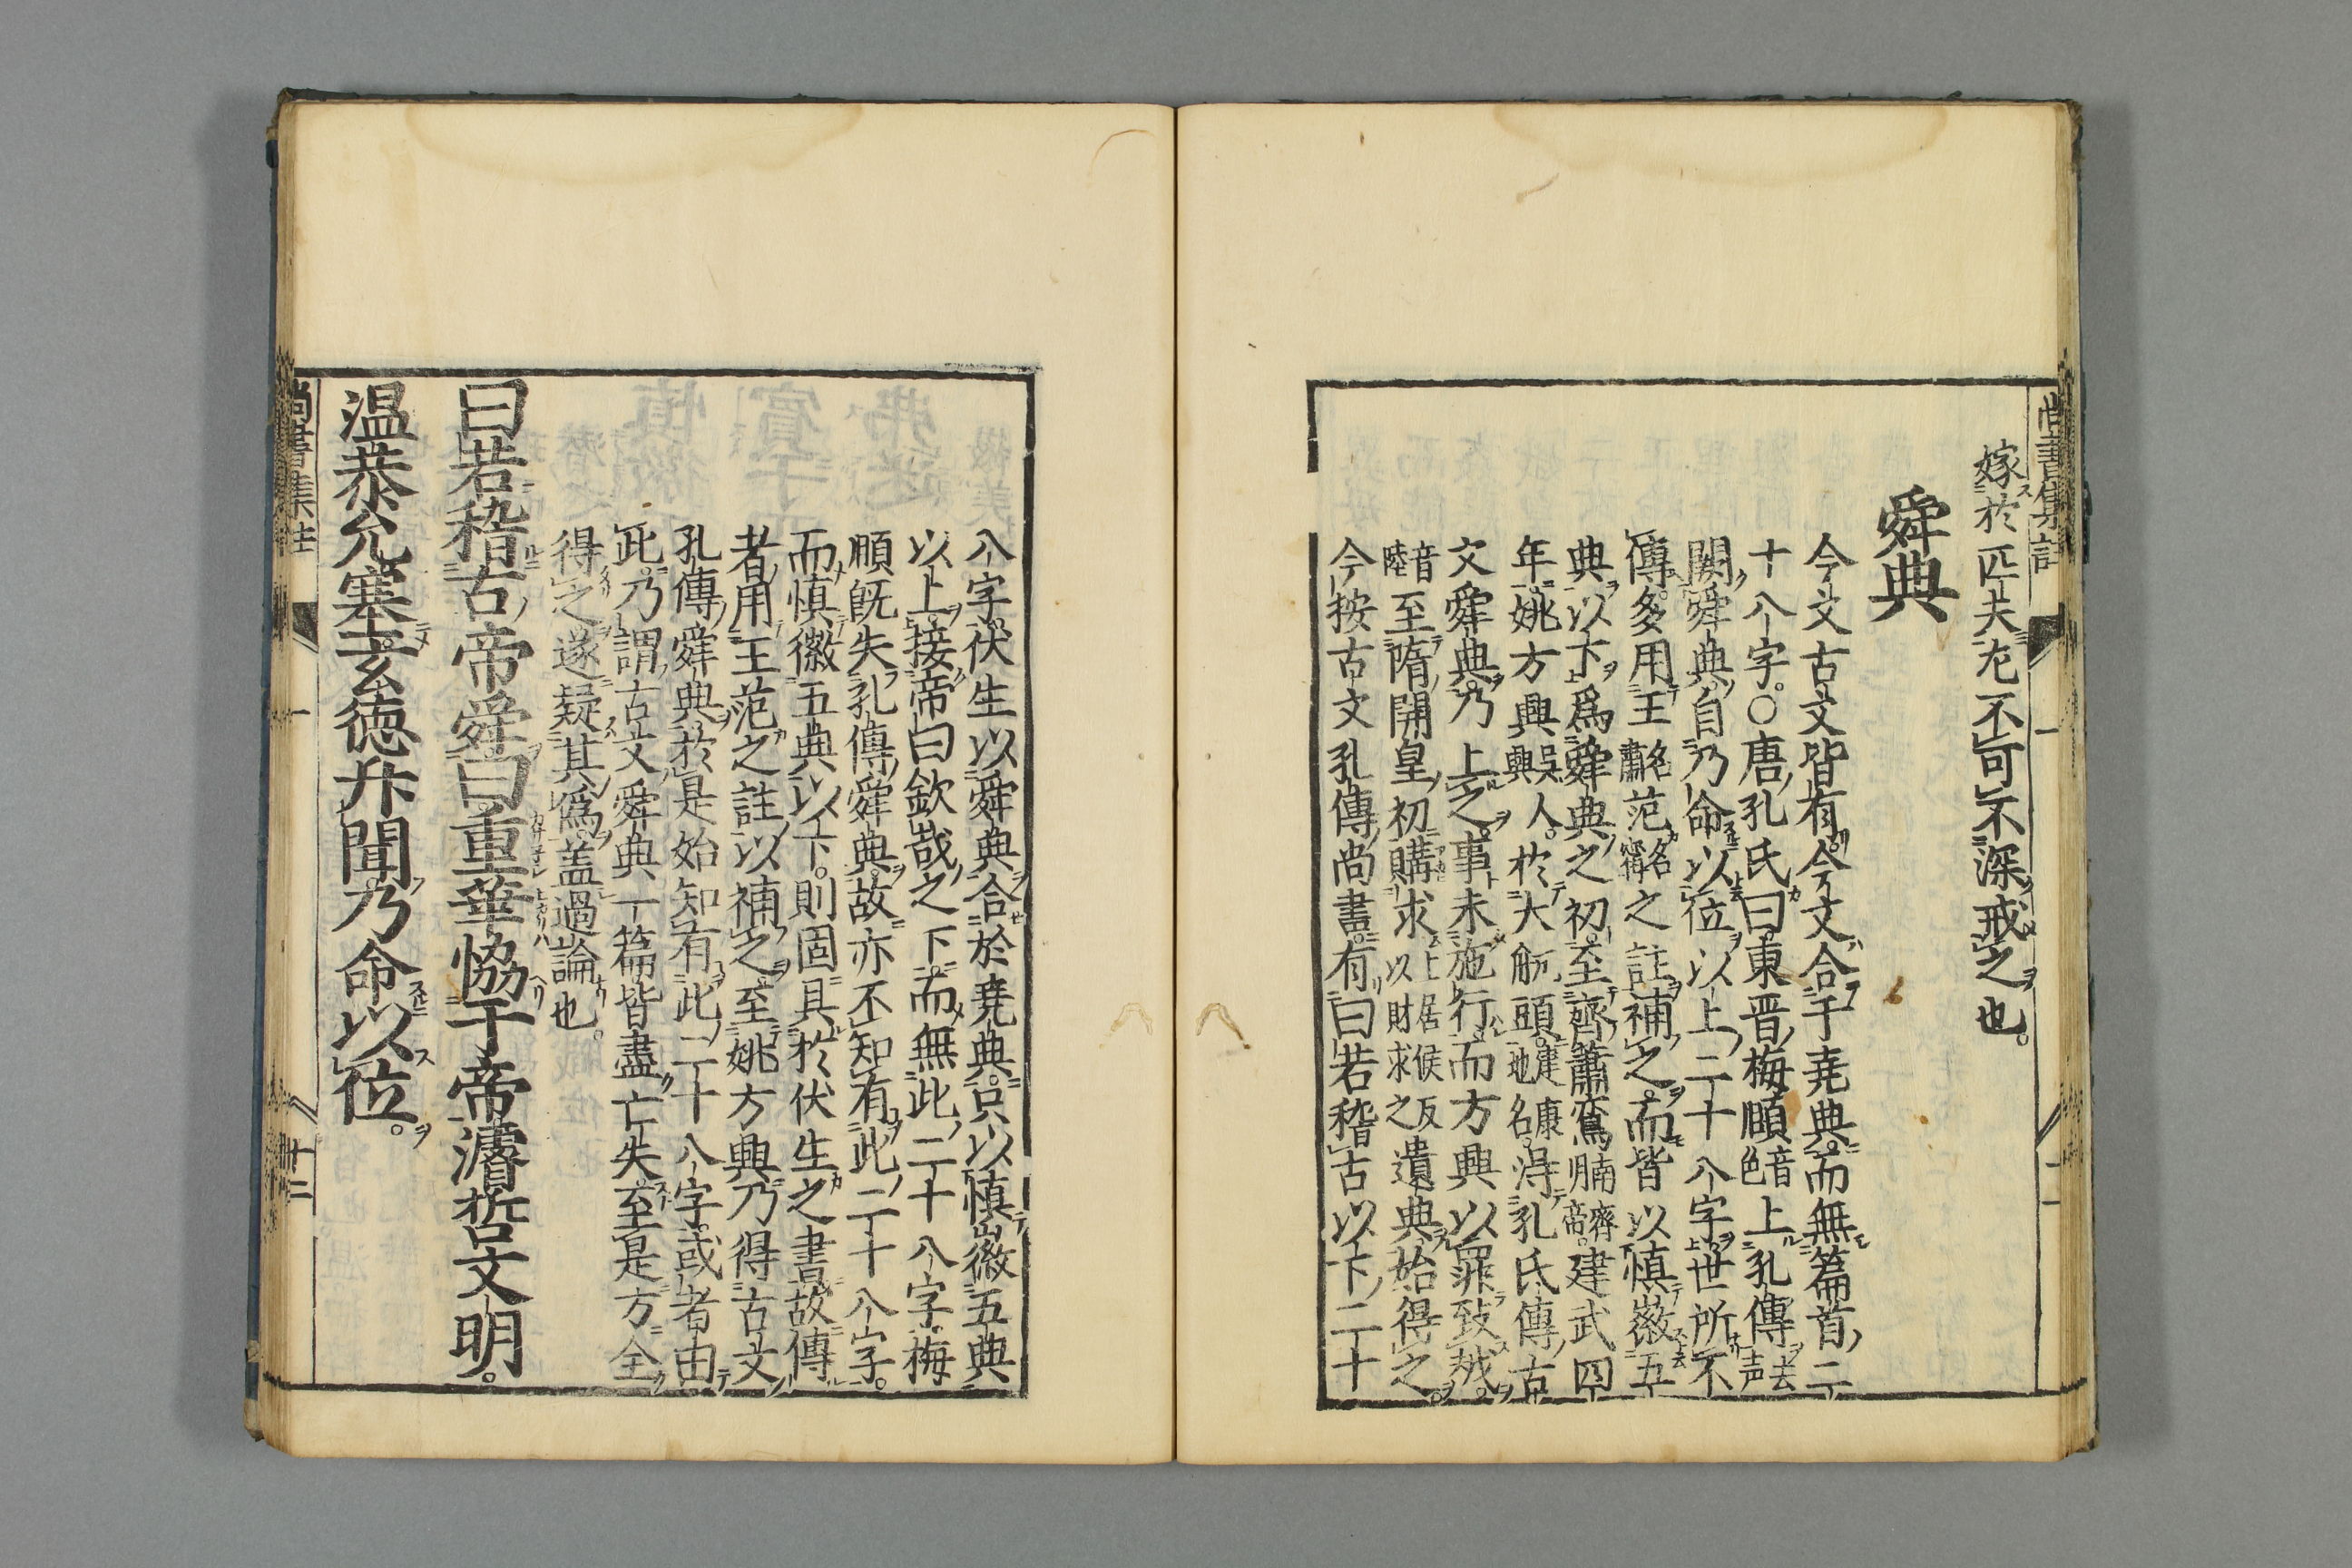 尚書集註
一
十一
嫁於匹夫尤不可不深戒之也。
舜典
今文古文皆有。今文合于堯典。而無篇首二
十八字。〇唐孔氏曰。東晋梅頤音色上孔傳去声
闕舜典自乃命以位以上二十八字。世所不
傳。多用王名肅范名甯之註補之。而皆以愼徽五
典以下爲舜典之初。至齊蕭鸞齊明帝。建武四
年。姚方興吳興人。於大航頭。建康地名。得孔氏傳古
文舜典。乃上之。事未施行。而方興以罪致戮。
音陸至隋開皇初購上居候反以財求之求遺典。始得之。
今按古文孔傳尚書。有曰若稽古以下二十
八字。伏生以舜典合於堯典。只以愼徽五典
以上接帝曰欽哉之下。而無此二十八字。梅
頤既失孔傳舜典。故亦不知有此二十八字。
而愼徽五典以下。則固具於伏生之書。故傳
者用王范之註以補之。至姚方興乃得古文
孔傳舜典。於是始知有此二十八字。或者由
此。乃謂古文舜典一篇皆盡亡失。至是方全
得之。遂疑其僞。盖過論也。
曰若稽古帝舜。曰重華恊于帝。濬哲文明。
温恭允塞。玄德升聞。乃命以位。
尚書集註
一
十二